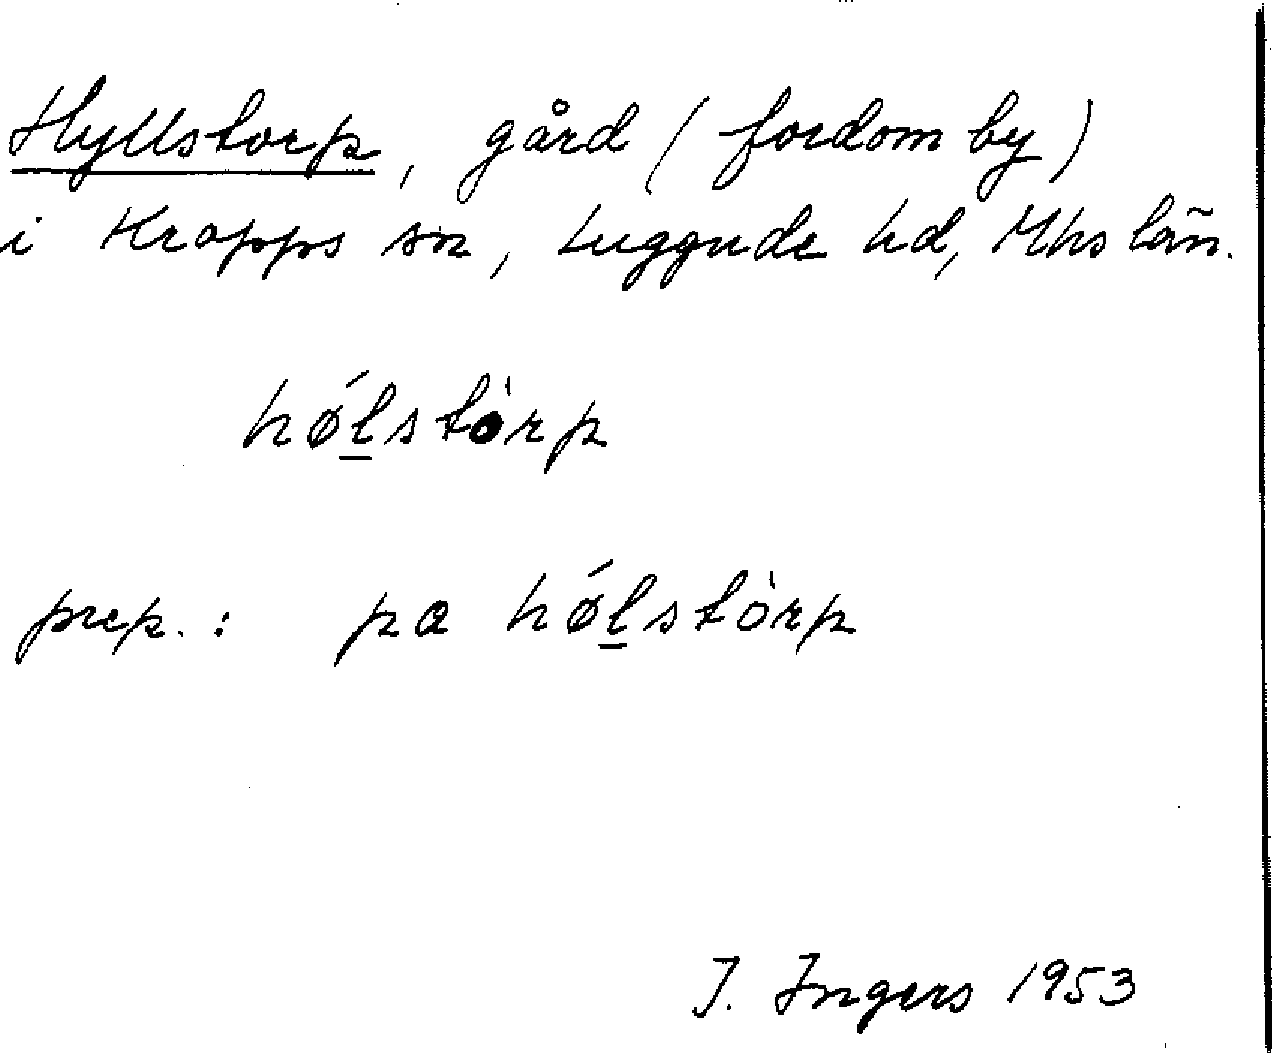 Hyllstorp, gård (fordom by)
i Kropps sn, Luggude hd, Mhs län.
hǿl̠stȯrp
prep.: pa hǿl̠stȯrp
I. Ingers 1953